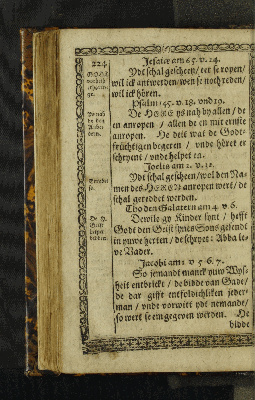 224
Jesaie am 65. v. 24.
Ydt schal gescheen / eer se ropen /
wil ick antwerden / wen se noch reden /
wil ick hören.
Psalm 145. v. 18. vnd 19.
De HERE ys nah by allen / de
en anropen / allen de en mit ernste
anropen. He deit wat de Godt-
früchtigen begeren / vnde höret er
schryent / vnde helpet en.
Joelis am 2. v. 32.
Ydt schal gescheen / wol den Na-
men des HEREN anropen wert / de
schal gereddet werden.
Tho den Galatern am 4. v. 6.
Dewile gy Kinder synt / hefft
Godt den Geist synes Sons gesendt
in yuwe herten / de schryet: Abba le-
ve Vader.
Jacobi am 1. v. 5. 6. 7.
So jemandt manck yuw Wys-
heit entbrickt / de bidde van Gade /
de dar gifft entfoldichliken jeder-
man / vnde vorwitt ydt nemande /
so wert se em gegeven werden. He
bidde